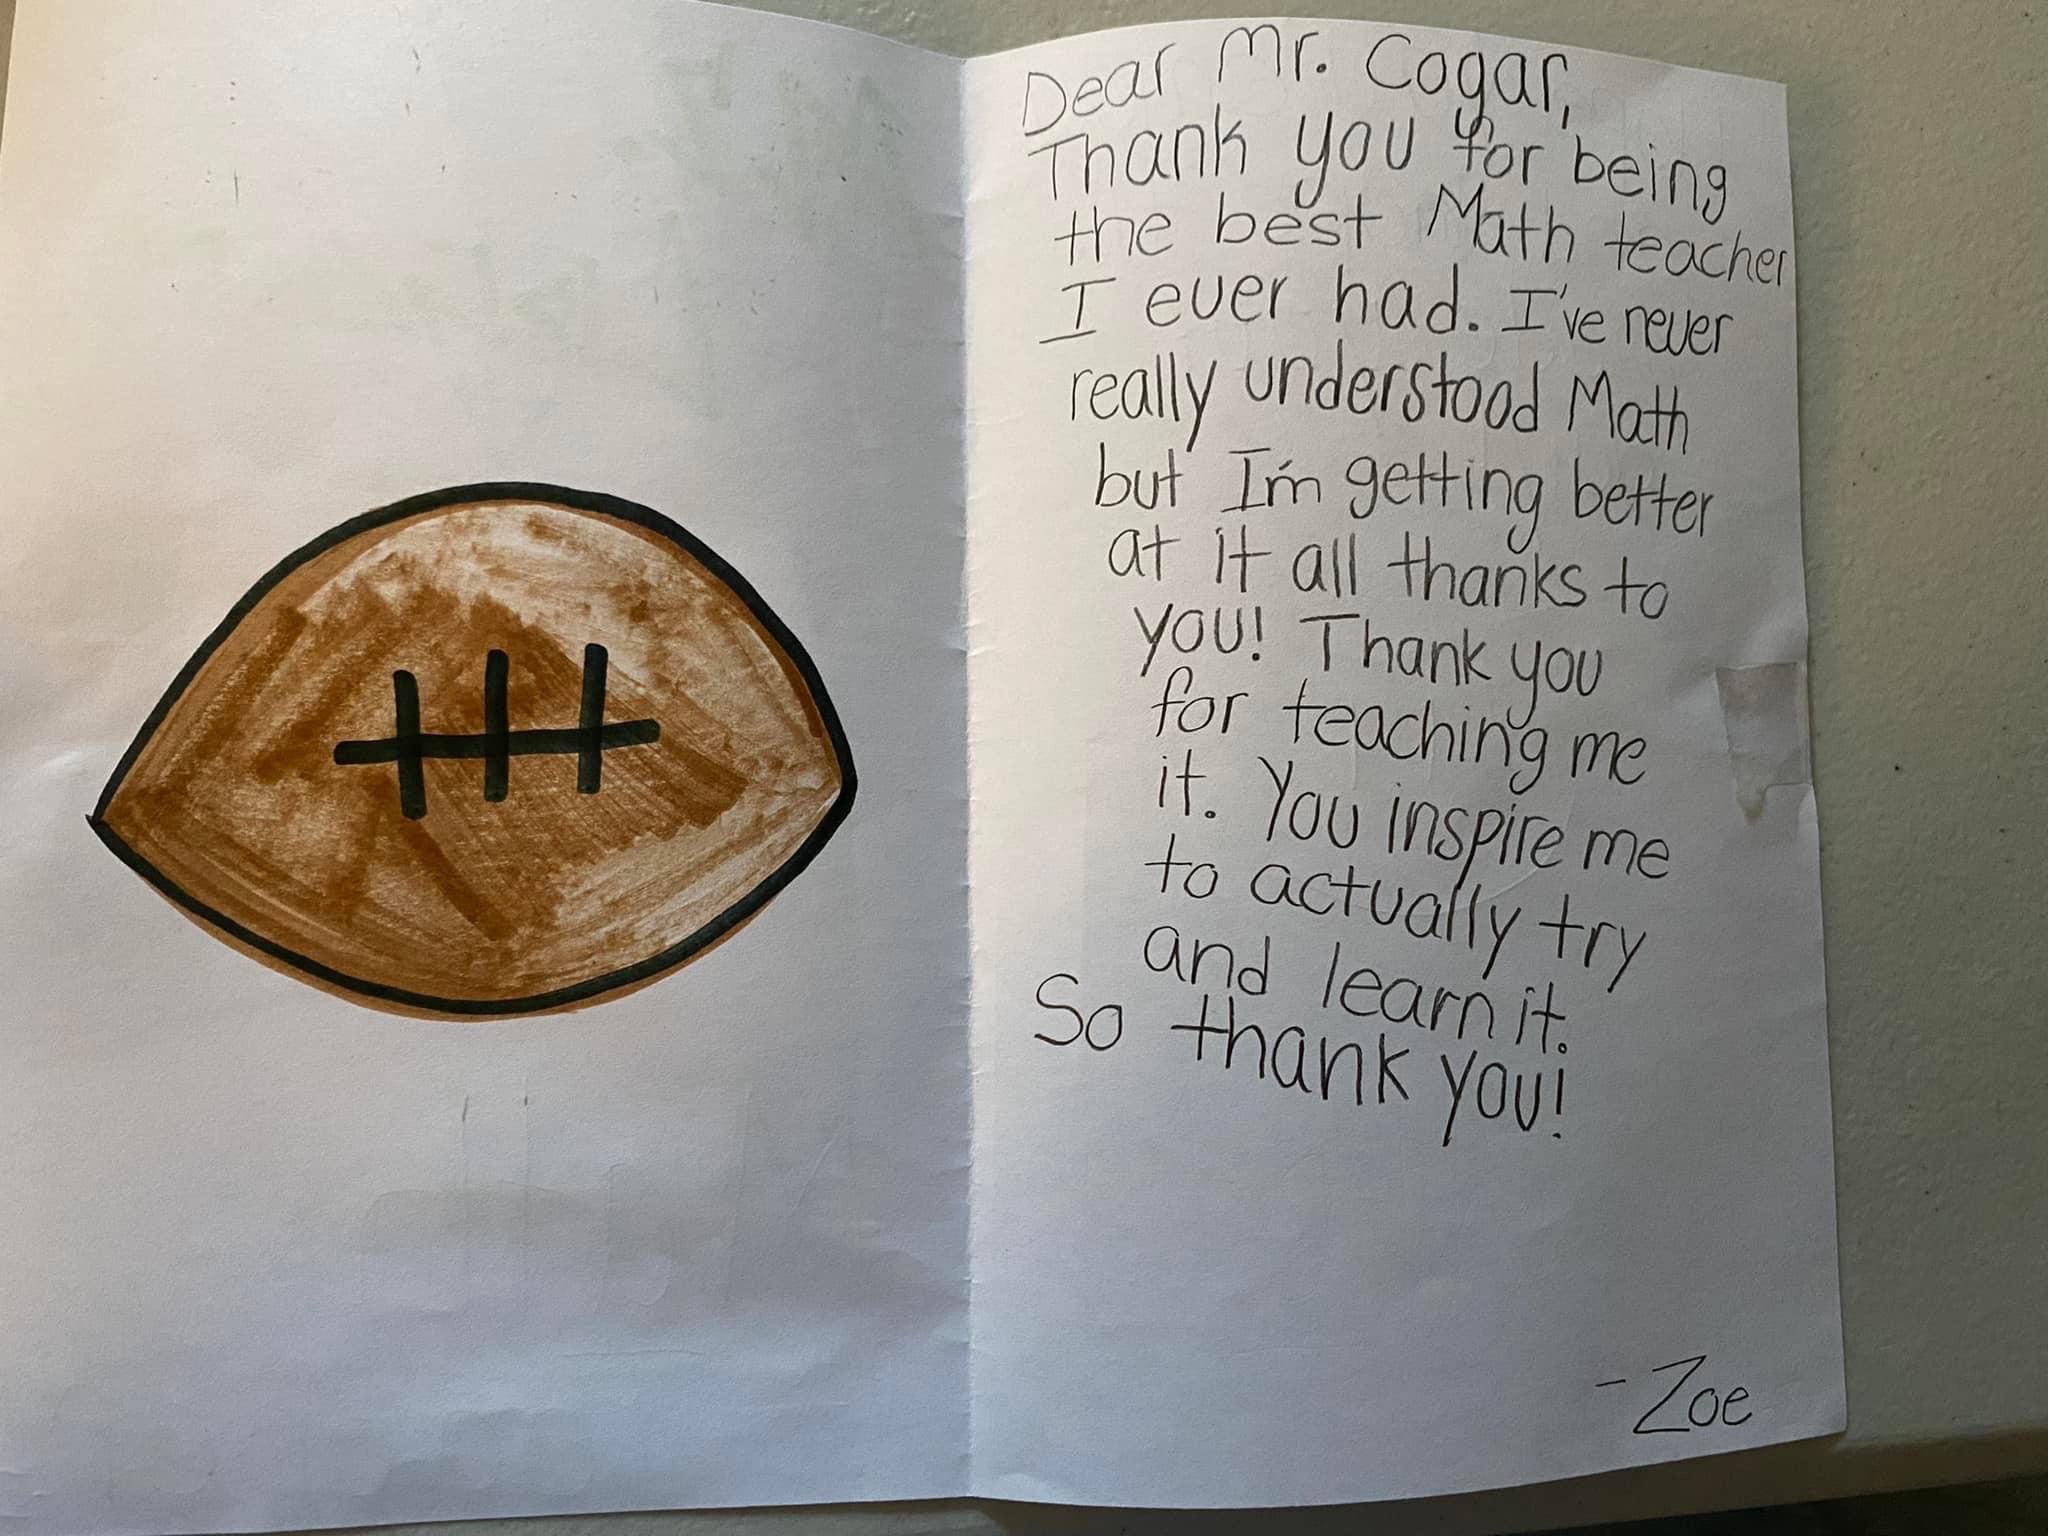 Dear Mr. Cogar,
Thank you for being
the best Math teacher
I ever had. I've never
really understood Math
but I'm getting better
at it all thanks to
you! Thank you
for teaching me
it. You inspire me
to actually try
and learn it.
So thank you!
- Zoe